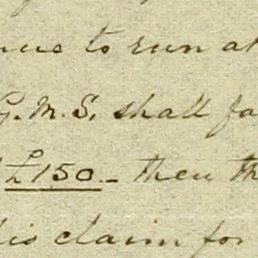 to run at
G. M. S. shall fa
£150 - then th
his claim for